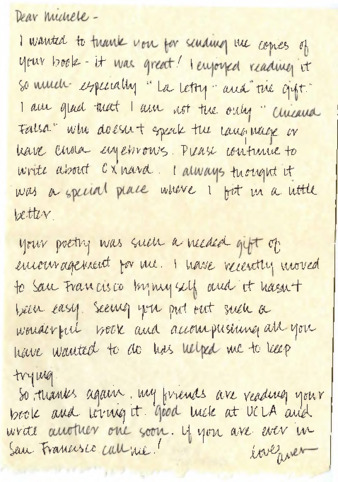 Dear Michele -
I wanted to thank you for sending me copies of
your book - it was great! I enjoyed reading it
so much - especially "La Letty" and "the gift."
I am glad that I am not the only "Chicana
Falsa" who doesn't speak the language or
have Chola eyebrows. Please continue to
write about Oxnard. I always thought it
was a special place where I fit in a little
better.
Your poetry was such a needed gift of
encouragement for me. I have recently moved
to San Francisco by myself and it hasn't
been easy. Seeing you put out such a
wonderful book and accomplishing all you
have wanted to do has helped me to keep
trying.
So thanks again. my friends are reading your
book and loving it. good luck at UCLA and
write another one soon. If you are ever in
San Francisco call me!
love,